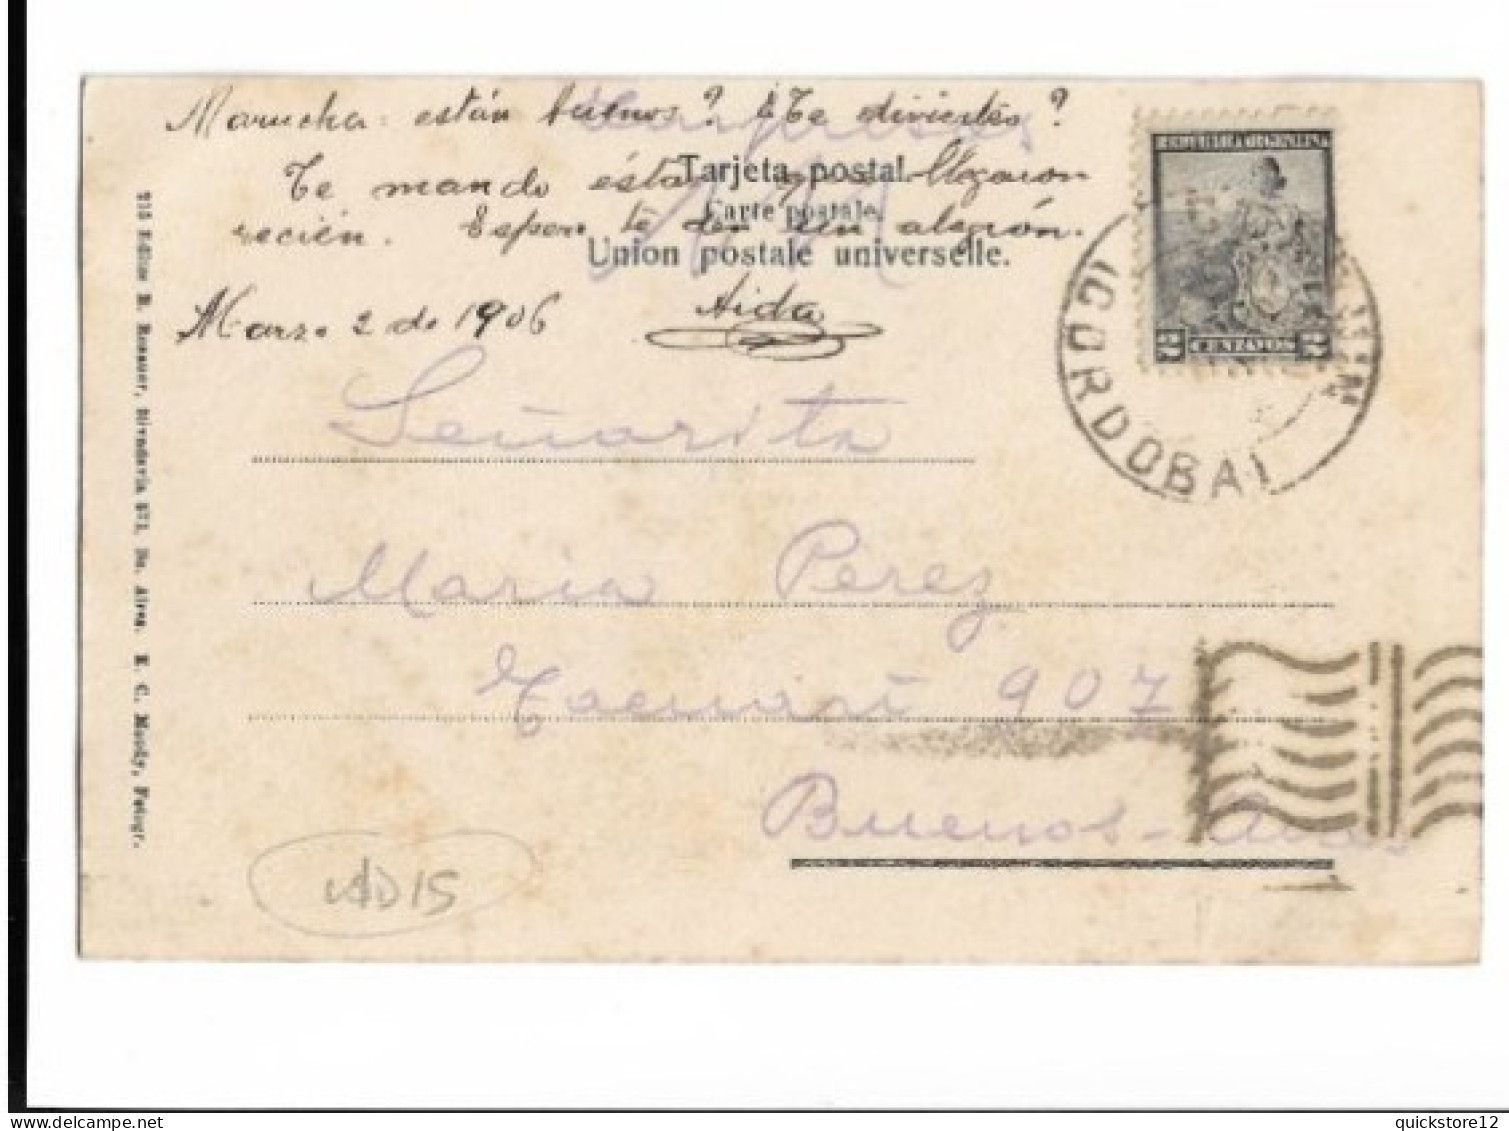 Marucha: están buenos? ¿Te diviertes?
Te mando éstas que llegaron
recién. Espero te den un alegrón.
Marzo 2 de 1906
Aida
Tarjeta postal.
Carte postale.
Union postale universelle.
REPUBLICA ARGENTINA
2 CENTAVOS 2
(CORDOBA)
Señorita
Maria Perez
Tacuarí 907
Buenos-Aires
215 Editor R. Rosauer, Rivadavia 571, Bs. Aires. E. C. Moody, Fotogr.
AD15
delcampe.net
quickstore12